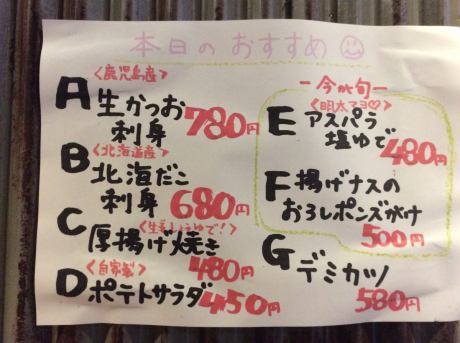 本日のおすすめ
<鹿児島産>
A 生かつお
刺身 780円
<北海道産>
B 北海だこ
刺身 680円
<生姜じょうゆで!>
C 厚揚げ焼き
480円
<自家製>
D ポテトサラダ 450円
-今が旬-
<明太マヨ♡>
E アスパラ
塩ゆで 480円
F 揚げナスの
おろしポンズがけ
500円
G デミカツ
580円